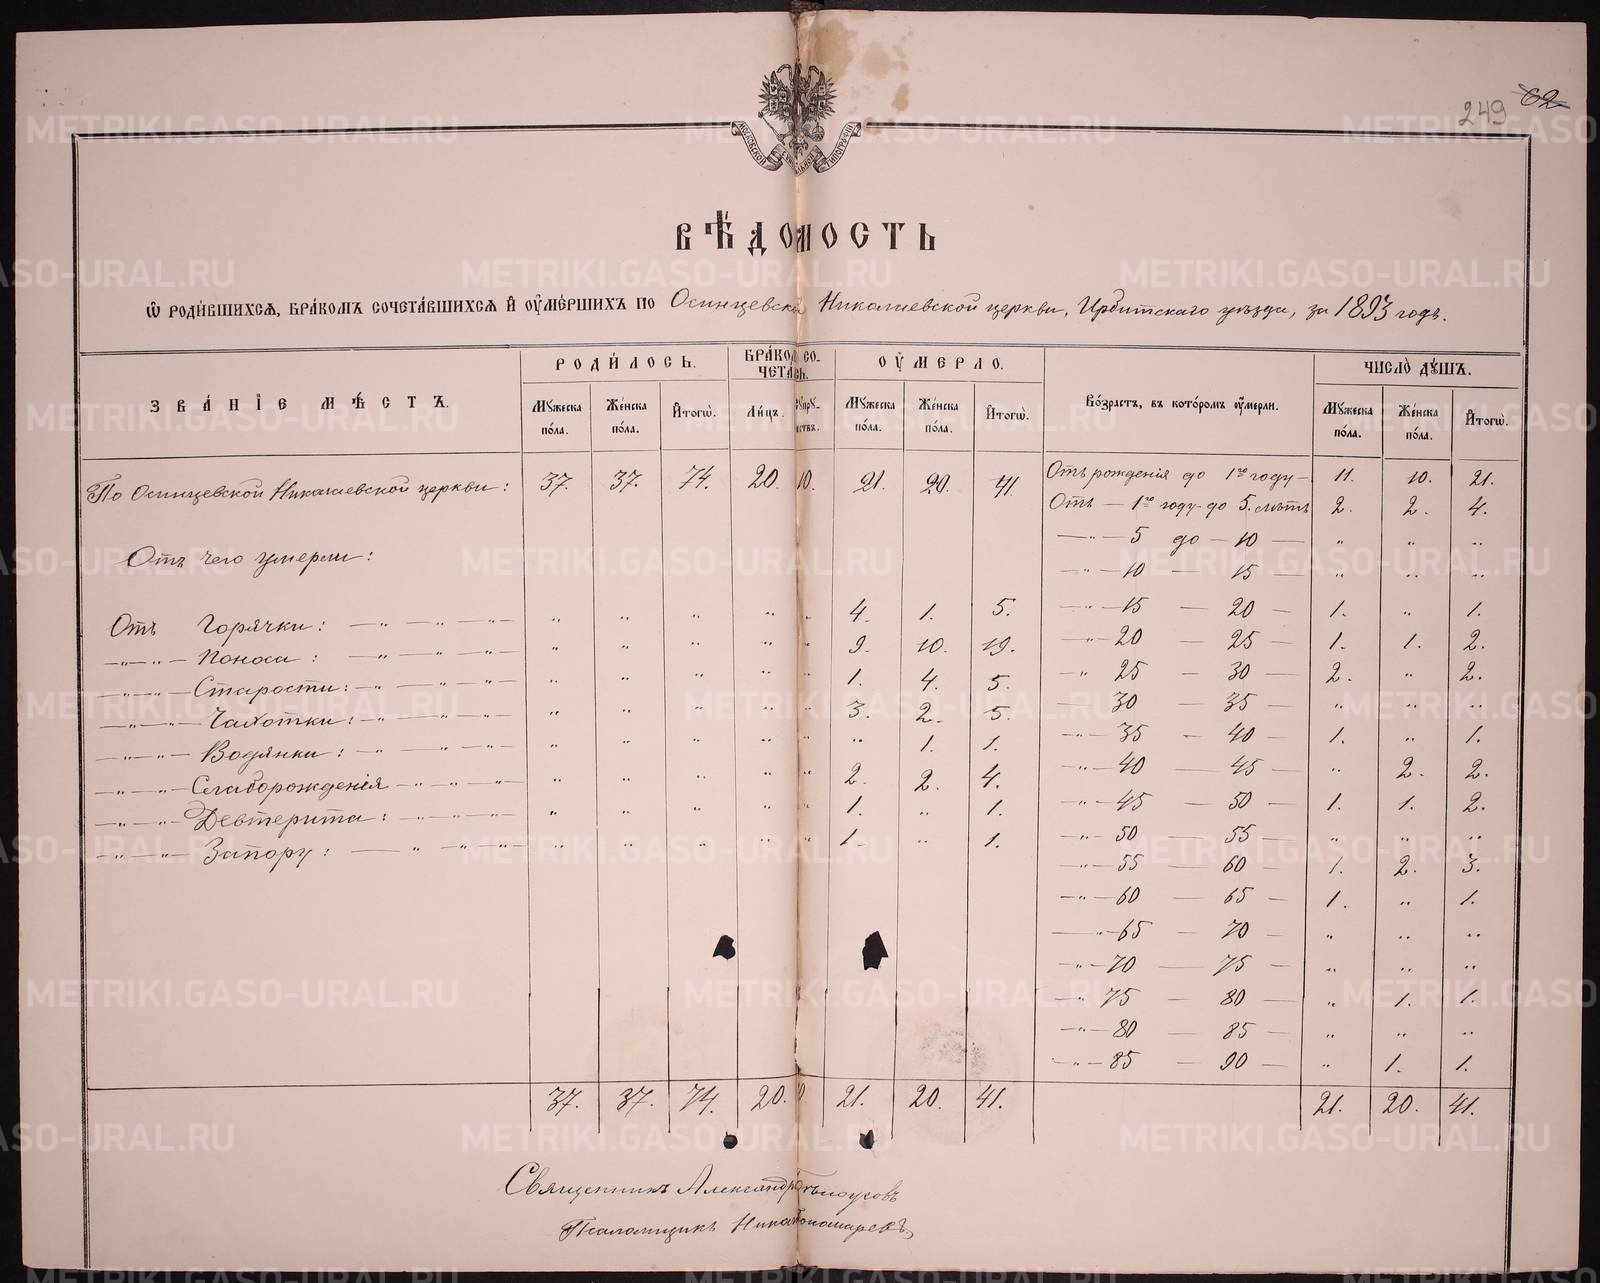 249 62
МОСКОВСКОЙ СѴНОДАЛЬНОЙ ТИПОГРАФІИ
ВѢ́ДОМОСТЬ
Ѡ҆ РОДИ́ВШИХСѦ, БРА́КОМЪ СОЧЕТА́ВШИХСѦ И҆ ОУ҆МЕ́РШИХЪ ПО Осинцевской Николаевской церкви, Ирбитскаго уѣзда, за 1893 годъ.
ЗВА́НІЕ МѢ́СТЪ. РОДИ́ЛОСЬ. БРА́КОМЪ СОЧЕТА́СЬ. ОУ҆́МЕРЛО. Во́зрастъ, въ кото́ромъ оу҆́мерли. ЧИСЛО̀ ДꙊ́ШЪ.
Мꙋ́жеска по́ла. Же́нска по́ла. И҆того̀. Ли́цъ. Мꙋ́жеска по́ла. Же́нска по́ла. И҆того̀. Мꙋ́жеска по́ла. Же́нска по́ла. И҆того̀.
По Осинцевской Николаевской церкви: 37. 37. 74. 20. 10. 21. 20. 41. Отъ рожденія до 1го году – 11. 10. 21.
Отъ — 1го году до 5. лѣтъ 2. 2. 4.
Отъ чего умерли: —„— 5 до — 10 — „ „ „
—„— 10 — 15 — „ „ „
Отъ Горячки: — „ — „ — „ — „ „ „ „ „ 4. 1. 5. —„— 15 — 20 — 1. „ 1.
—„—„— Поноса: — „ — „ — „ — „ „ „ „ „ 9. 10. 19. —„— 20 — 25 — 1. 1. 2.
—„—„— Старости: — „ — „ — „ — „ „ „ „ „ 1. 4. 5. „ 25 — 30 — 2. „ 2.
—„—„— Чахотки: — „ — „ — „ — „ „ „ „ „ 3. 2. 5. — 30 — 35 — „ „ „
—„—„— Водянки: — „ — „ — „ — „ „ „ „ „ „ 1. 1. —„— 35 — 40 — 1. „ 1.
—„—„— Слаборожденія — „ — „ — „ — „ „ „ „ „ 2. 2. 4. —„— 40 — 45 — „ 2. 2.
—„—„— Девтерита: — „ — „ — „ — „ „ „ „ „ 1. „ 1. —„— 45 — 50 — 1. 1. 2.
—„—„— Запору: — „ — „ — „ — „ „ „ „ „ 1. „ 1. —„— 50 — 55 — „ „ „
—„— 55 — 60 — 1. 2. 3.
—„— 60 — 65 — 1. „ 1.
—„— 65 — 70 — „ „ „
—„— 70 — 75 — „ „ „
—„— 75 — 80 — „ 1. 1.
—„— 80 — 85 — „ „ „
—„— 85 — 90 — „ 1. 1.
37. 37. 74. 20. 10 21. 20. 41. 21. 20. 41.
Священникъ Александръ Бѣлоусовъ
Псаломщикъ Пономаревъ
METRIKI.GASO-URAL.RU